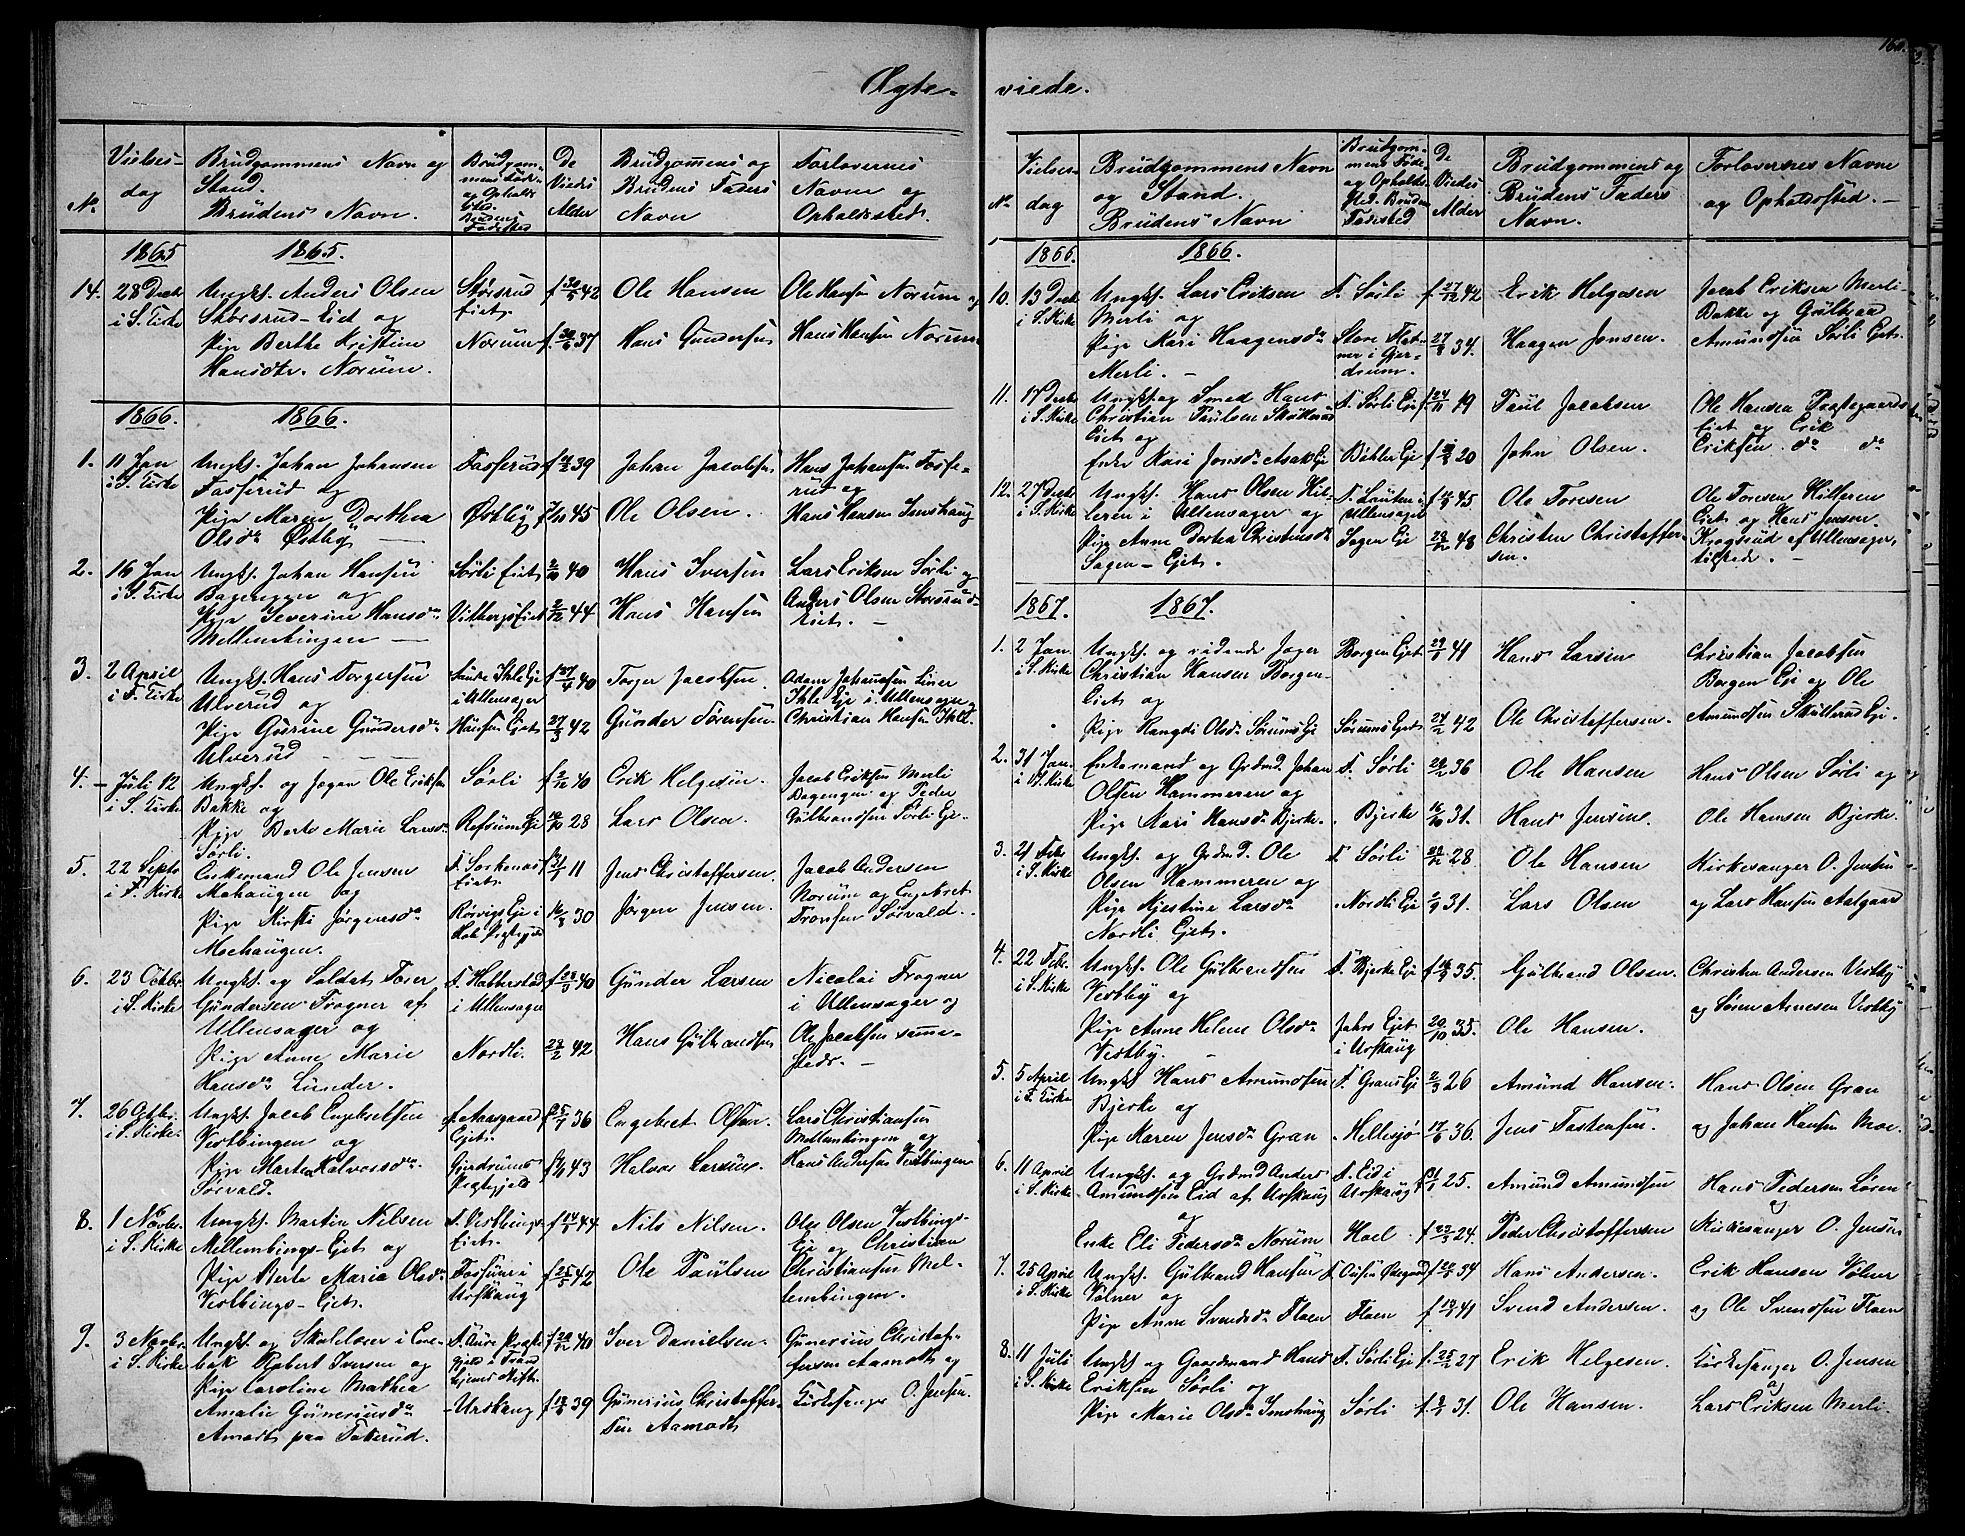 160.
Ægte-
viede.
No
Vielses-
dag
Brudgommens Navn og
Stand.
Brudens Navn.
De
Viedes
Alder
Brudgommens og
Brudens Faders
Navn
Forlovernes
Navn og
Opholdssted.
1865
1865.
14.
28 Decbr
i S. Kirke
Ungk. Anders Olsen
Skorsrud-Eiet og
Pige Berthe Kristine
Hansdtr. Norum.
Skorsrud
Eiet.
Norum
f. 30/5 42
37
Ole Hansen
Hans Gundersen
Ole Hansen Norum og
Hans Hansen Norum
1866.
1866.
1.
11 Jan
i S. Kirke
Ungk. Johan Johansen
Fosserud og
Pige Maren Dorthea
Olsdr Østby
Fosserud
Østby
39
45
Johan Jacobsen
Ole Olsen.
Hans Johansen Fosse-
rud og
Hans Hansen Imshaug
2.
16 Jan
i S. Kirke
Ungk. Johan Hansen
Bagengen og
Pige Severine Hansdr
Mellembingen
Sørli Eiet
Vitbergs Eiet
40
44
Hans Iversen
Hans Hansen
Lars Eriksen Sørli og
Anders Olsen Skorsrud-
Eiet.
3.
2 April
i F. Kirke
Ungk. Hans Torgersen
Ulverud og
Pige Gurine Gundersdr
Ulverud
i Ullensager
f 27/4 40
27/3 42
Torger Jacobsen
Gunder Sørensen
Adam Johannesen
Ihle Eje i Ullensager og
Christian Hansen Ihle.
4.
Juli 12
i S. Kirke
Ungk. og Jæger Ole Eriksen
Bakke og
Pige Berte Marie Larsdr
Sørli.
Sørli
Refsum Eje
40
28
Erik Helgesen.
Lars Olsen.
Jacob Eriksen Merli
Bagengen og Peder
Gulbrandsen Sørli Eje.
5.
22 Septb
i F. Kirke
Enkemand Ole Jensen
Mohaugen og
Pige Kirsti Jørgensdr
Moehaugen.
Eiet.
Rørvigs Eje i
11
30
Jens Christoffersen.
Jørgen Jensen.
Jacob Andersen
Norum og Engebret
Tronsen Sørvald.
6.
23 Octbr
i S. Kirke
Ungk. og Soldat Torer
Gundersen Frogner af
Ullensager og
Pige Anne Marie
Hansdr Lunder.
F. Habberstad
i Ullensager
Nordli.
40
28/2 42
Gunder Larsen
Hans Gulbrandsen
Nicolai Frogner
i Ullensager og
Ole Jacobsen samme-
steds.
7.
26 Octbr.
i S. Kirke.
Ungk. Jacob Engebretsen
Vestbingen og
Pige Marte Halvorsdr
Sørvald.
f. Aasgaard
Ejet.
Gjerdrums
Prgtgjeld
36
43
Engebret Olsen.
Halvor Larsen.
Lars Christiansen
Mellembingen og
Hans Andersen Vestbingen
8.
1 Novbr.
i S. Kirke
Ungk. Martin Nilsen
Mellembings-Ejet og
Pige Berte Maria Olsdr
Vestbings-Ejet.
F. Vestbings-
Eiet.
Fossum i
Urskoug
44
f 25/5 42
Nils Nilsen.
Ole Paulsen
Ole Olsen Vestbings-
Eje og Christian
Christiansen Mel-
lembingen.
9.
3 Novbr.
i S. Kirke
Ungk. og Skolelærer i Ene-
bak Robert Iversen og
Pige Caroline Mathea
Amalie Gunerusdr
Amodt paa Fakerud.
F. Aure Prgt-
gjeld i Trond-
hjems Stift.
Urskoug
f 20/12 40
39
Iver Danielsen.
Gunerius Christoffer-
sen Aamodt
Gunerius Christof-
fersen Aamodt og
Kirkesanger O. Jensen.
No
Vielses-
dag
Brudgommens Navn
og Stand.
Brudens Navn
Brudgom-
mens Føde
og Opholds-
sted. Brudens
Fødested
De
Viedes
Alder
Brudgommens og
Brudens Faders
Navn.
Forlovernes Navne
og Opholdssted.
1866.
1866.
10.
13 Decbr
i S. Kirke
Ungk. Lars Eriksen
Merli og
Pige Kari Haagensdr
Merli.
F. Sørli
Store Flat-
ner i Gjer-
drum.
f. 27/12 42
27/8 34.
Erik Helgesen
Haagen Jonsen.
Jacob Eriksen Merli-
Bakke og Gulbrand
Amundsen Sørli Ejet.
11.
17 Decbr
i S. Kirke
Ungk. og Smed Hans
Christian Paulsen Skullerud
Eiet og
Enke Kari Jonsdr Asak Eje
F. Sørli Eje
Bøhler Eje
f. 24/11 19
20
Paul Jacobsen
John Olsen.
Ole Hansen Prgtegaards
Eiet og Erik
Eriksen do do
12.
27 Decbr
i S. Kirke
Ungk. Hans Olsen Hil-
leren i Ullensager og
Pige Anne Dortea Christensdr
Sagen-Ejet.
Ullensager
Sagen Eje
45
48
Ole Toresen
Christen Christoffer-
sen.
Ole Toresen Hilleren
Eiet og Hans Jensen
Krogsrud af Ullensager,
tilsted.
1867.
1867.
1.
2 Jan.
i S. Kirke
Ungk. og ridende Jæger
Christian Hansen Borgen-
Eiet og
Pige Rangdi Olsdr Sørums Eje
Borgen Ejet
Sørums Ejet
41
24/2 42
Hans Larsen
Ole Christoffersen.
Christian Jacobsen
Borgen Eje og Ole
Amundsen Skullerud Eje.
2.
31 Jan.
Enkemand og Grdmd. Johan
Olsen Hammeren og
Pige Mari Hansdr Bjerke.
F. Sørli
Bjerke
36
16/10 31.
Ole Hansen
Hans Jensen.
Hans Olsen Sørli og
Ole Hansen Bjerke.
3.
21 Febr
i S. Kirke
Ungk. og Grdmd. Ole
Olsen Hammeren og
Pige Kjestine Larsdr
Nordli Ejet.
F. Sørli
Nordli Eje
28
31.
Ole Hansen
Lars Olsen
Kirkesanger O. Jensen
og Lars Hansen Aalgaard
4.
22 Febr.
i S. Kirke
Ungk. Ole Gulbrandsen
Vestby og
Pige Anne Helene Olsdr
Vestby.
F. Bjerke Eje
Jahrs Ejet
i Urskaug
35.
20/10 35.
Gulbrand Olsen.
Ole Hansen.
Christen Andersen Vestby
og Søren Arnesen Vestby
5.
5 April
i F. Kirke
Ungk. Hans Amundsen
Bjerke og
Pige Maren Jensdr Gran
F. Grans Eje
Hellesjø
26
17/6 36.
Amund Hansen.
Jens Fastensen.
Hans Olsen Gran
og Johan Hansen Moe.
6.
11 April
i S. Kirke
Ungk. og Grdmd Anders
Amundsen Eid af Urskaug
og
Enke Eli Pedersdr Norum
F. Eid i
Urskaug
Hoel
25.
24.
Amund Amundsen
Peder Christoffersen
Hans Pedersen Løren
Kirkesanger O. Jensen
7.
25 April
i S. Kirke
Ungk. Gulbrand Hansen
Vølner og
Pige Anne Svendsdr Floen
Floen
34
41
Hans Andersen.
Svend Andersen.
Erik Hansen Vølner
og Ole Svendsen Floen
8.
11 Juli
i S. Kirke
Ungk og Gaardmand Hans
Eriksen Sørli og
Pige Marie Olsdr Imshaug
F. Sørli Eje
Sørli
f. 25/2 27
31.
Erik Helgesen.
Ole Hansen.
Kirkesanger O. Jensen
og
Lars Eriksen Merli.